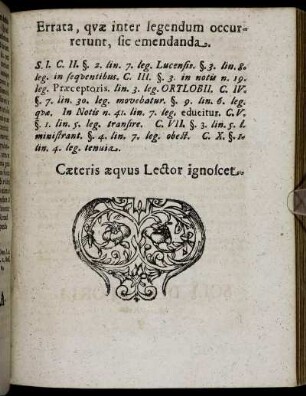 Errata, qvæ inter legendum occur-
rerunt, sic emendanda.
S. I. C. II. §. 2. lin. 7. leg. Lucensis. §. 3. lin. 8.
leg. in seqventibus. C. III. §. 3. in notis n. 19.
leg. Præceptoris. lin. 3. leg. ORTLOBII. C. IV.
§. 7. lin. 30. leg. movebatur. §. 9. lin. 6. leg.
qvæ. In Notis n. 41. lin. 7. leg. educitur. C. V.
§. 1. lin. 5. leg. transire. C. VII. §. 3. lin. 5. l.
ministrant. §. 4. lin. 7. leg. obest. C. X. §. 1.
lin. 4. leg. tenuia.
Cæteris æqvus Lector ignoscet.